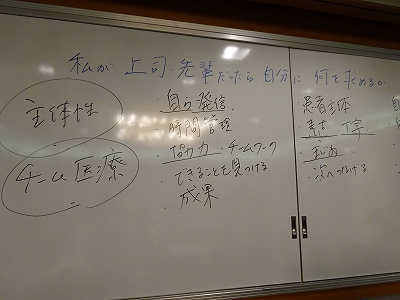 私が上司・先輩だったら自分に何を求めるか
主体性
チーム医療
・自ら発信
・時間管理
・協力力 チームワーク
・できることを見つける
・成果
患者主体
・次へつなげる